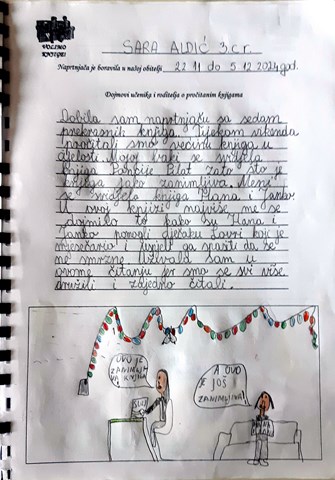 VOLIMO
KNJIGE!
SARA ALDIĆ 3.c r.
Naprtnjača je boravila u našoj obitelji 22.11 do 5.12.2024.god.
Dojmovi učenika i roditelja o pročitanim knjigama
Dobila sam naprtnjaču sa sedam
prekrasnih knjiga. Tijekom vikenda
pročitali smo većinu knjiga u
cjelosti. Mojoj baki se svidjela
knjiga Poncije Pilat zato što je
knjiga jako zanimljiva. Meni
se svidjela knjiga Hana i Janko.
U ovoj knjizi najviše me se
dojmilo to kako su Hana i
Janko pomogli dječaku Lovri koji je
mjesečario i uspjeli ga spasiti da se
ne smrzne. Uživala sam u
ovome čitanju jer smo se svi više
družili i zajedno čitali.
OVO JE
ZANIMLJI
VA KNJIGA
A OVO
JE JOŠ
ZANIMLJIVIJA!